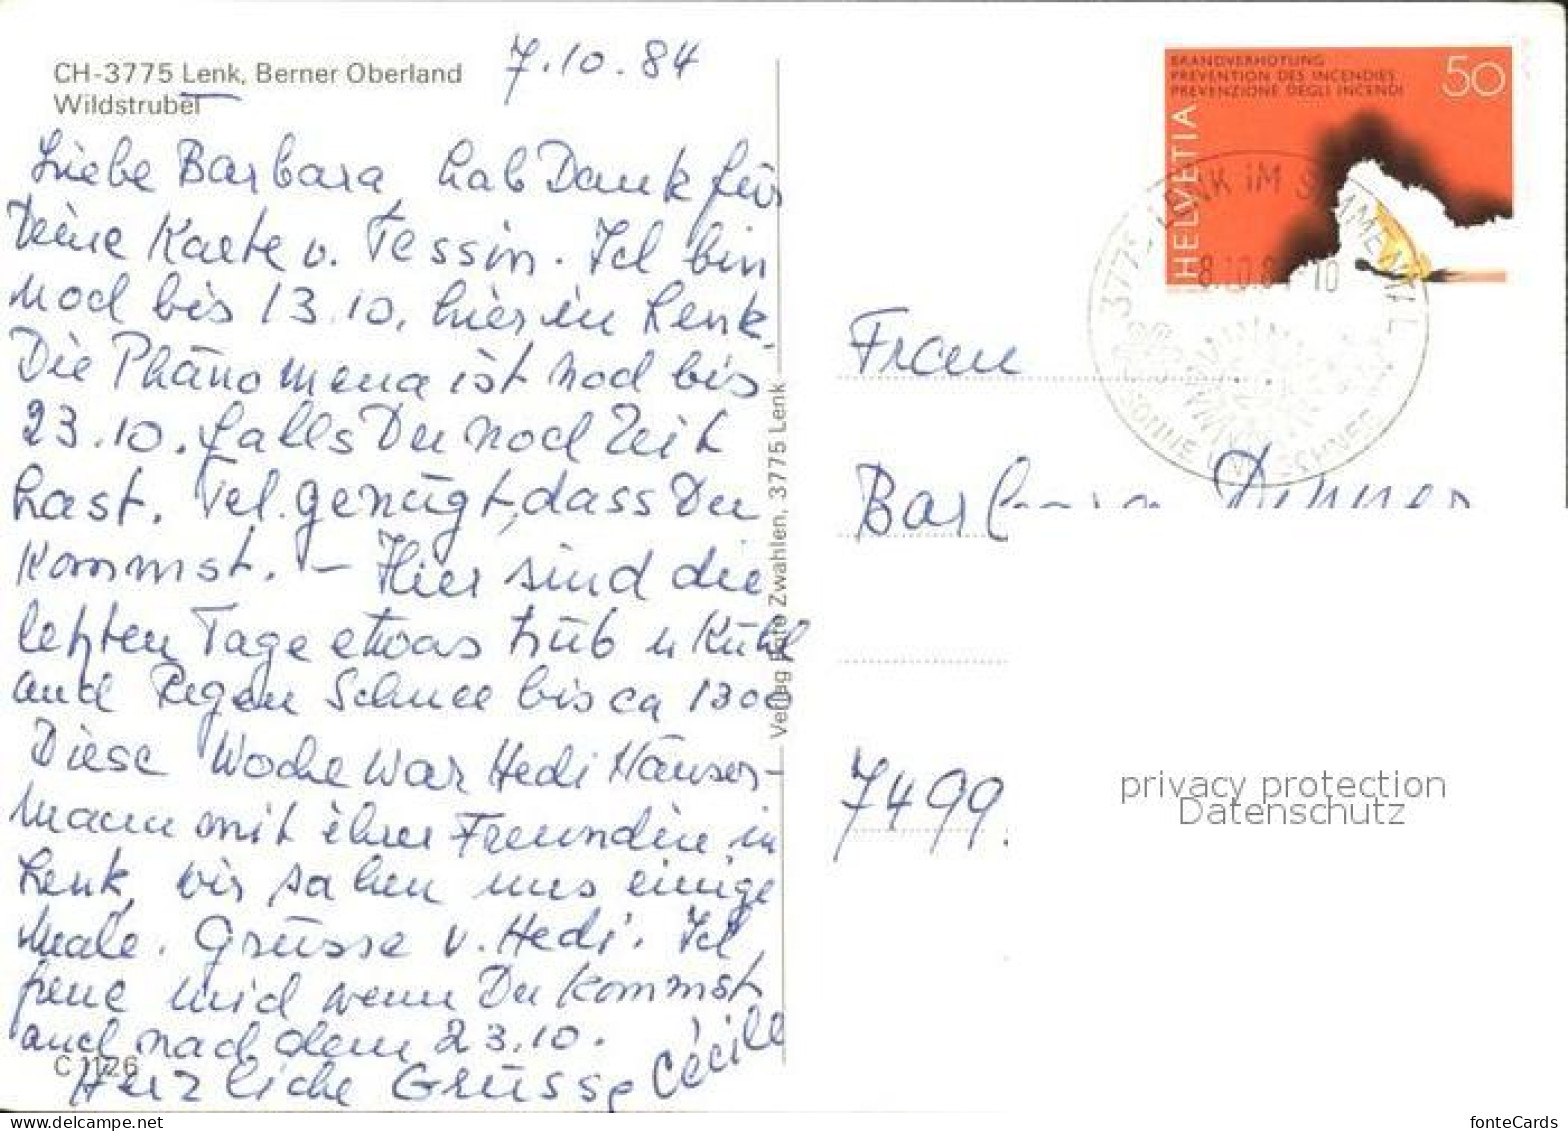 CH-3775 Lenk, Berner Oberland
Wildstrubel
7.10.84
Liebe Barbara, hab Dank für
Deine Karte v. Tessin. Ich bin
noch bis 13.10. hier in Lenk.
Die Phänomena ist noch bis
23.10. falls Du noch Zeit
hast. Tel. genügt, dass Du
kommst. – Hier sind die
letzten Tage etwas trüb u kühl
und Regen Schnee bis ca 1300
Diese Woche war Hedi Häuser-
mann mit ihrer Freundin in
Lenk, wir sahen uns einige
Male. Grüsse v. Hedi. Ich
freue mich wenn Du kommst
auch nach dem 23.10.
Herzliche Grüsse Cécile
C 1126
Verlag Foto Zwahlen, 3775 Lenk
BRANDVERHÜTUNG
PREVENTION DES INCENDIES
PREVENZIONE DEGLI INCENDI
50
HELVETIA
3775 LENK IM SIMMENTAL
8.10.8 10
SONNE UND SCHNEE
Frau
Barbara
7499
privacy protection
Datenschutz
fonteCards